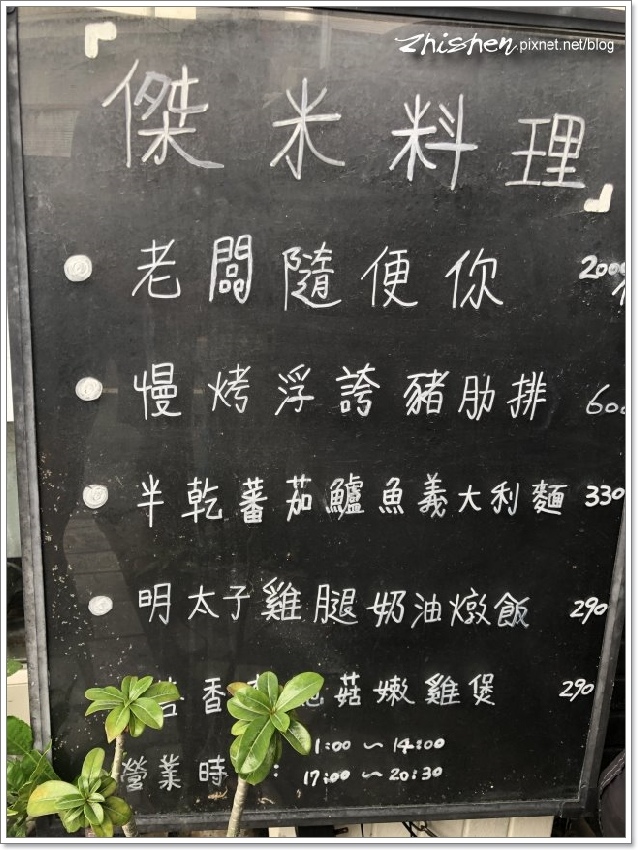 zhishen.pixnet.net/blog
傑米料理
老闆隨便你 2000
慢烤浮誇豬肋排 600
半乾蕃茄鱸魚義大利麵 330
明太子雞腿奶油燉飯 290
香 菇嫩雞煲 290
營業時 : 1:00 ~ 14:00
17:00 ~ 20:30